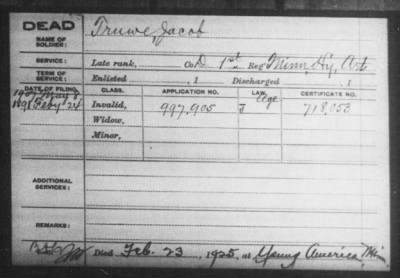 DEAD
NAME OF SOLDIER: Truwe, Jacob
SERVICE: Late rank, Co. D 1st Reg't Minn. Hy. Art
TERM OF SERVICE: Enlisted , 1 Discharged , 1
DATE OF FILING. CLASS. APPLICATION NO. LAW. CERTIFICATE NO.
1907 May 8 Age
1891 Feby 24 Invalid, 997,905 J 718,053
Widow,
Minor,
ADDITIONAL SERVICES:
REMARKS:
Died Feb. 23, 1925, at Young America, Minn